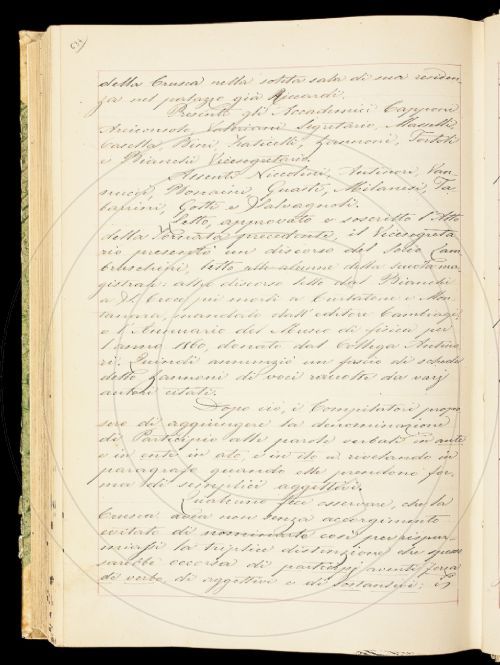 della Crusca nella solita sala di sua residen-
za nel palazzo già Riccardi.
Presenti gli Accademici Capponi
Arciconsolo, Valeriani Segretario, Masselli,
Casella, Bini, Fraticelli, Zannoni, Tortoli
e Bianchi Vicesegretario.
Assenti Niccolini, Antinori, Van-
nucci, Bonaini, Guasti, Milanesi, Ta-
barrini, Gotti e Salvagnoli.
Letto, approvato e soscritto l'Atto
della Tornata precedente, il Vicesegreta-
rio presentò un discorso del Socio Cam-
letto alle alunne della scuola ma-
altro discorso letto dal Bianchi
a S. Croce pei morti a Curtatone e Mon-
tanara, mandato dall'editore
e l'Annuario del Museo di fisica per
l'anno 1860, donato dal Collega Antino-
ri. Quindi annunziò un fascio di schede
dello Zannoni di voci raccolte da varj
autori citati.
Dopo ciò, i Compilatori propo-
sero di aggiungere la denominazione
di Participio alle parole verbali in ante
e in ente in ato, e in ito a
paragrafo quando che prendono for-
ma di semplici aggettivi.
Qualcuno fece osservare, che la
Crusca avea non senza accorgimento
evitato di nominarle così per rispar-
miarsi la triplice distinzione che spesso
sarebbe occorsa di participj aventi forza
di verbo, di aggettivo e di sostantivi; e